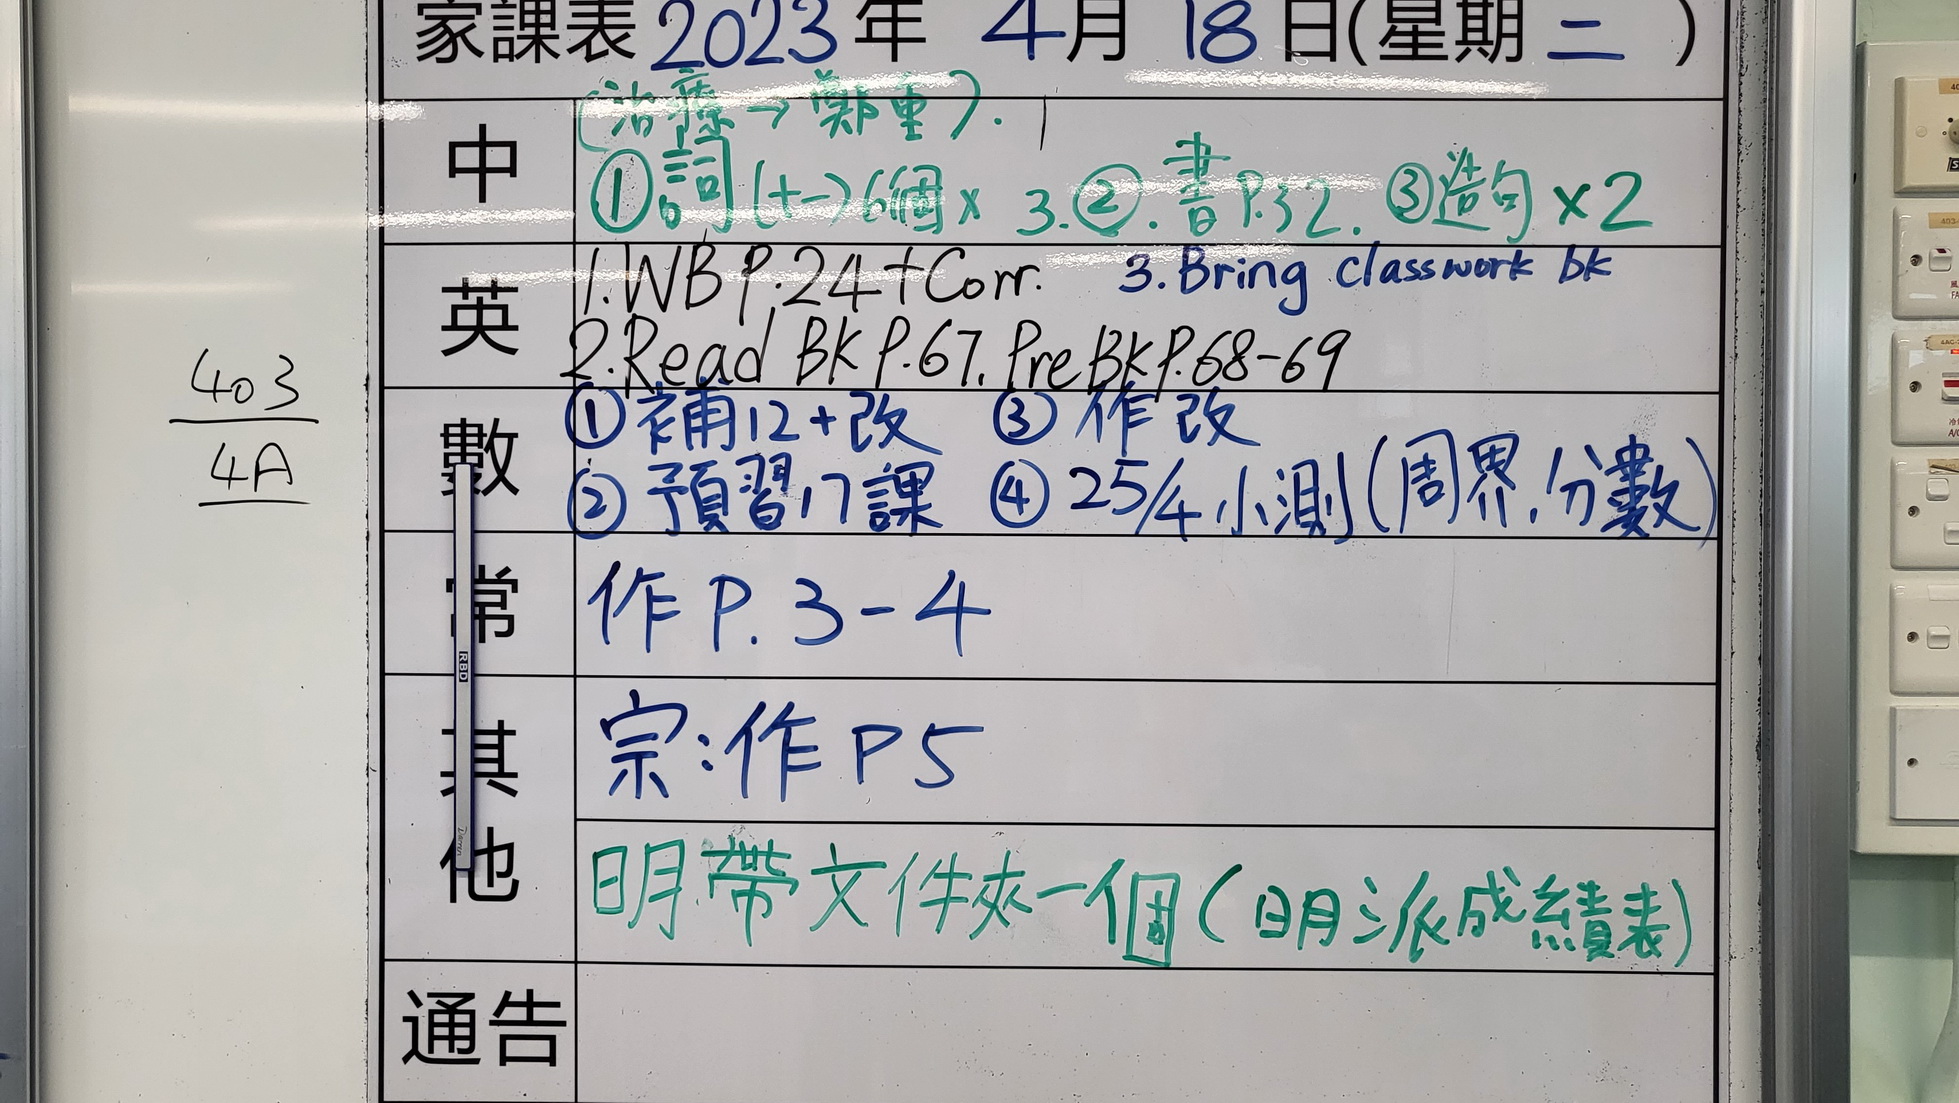 家課表 2023年 4月 18日(星期二)
中
(治療→鄭重).
①詞(十一)6個x 3.②.書P.32. ③造句x2
英
1.WB P.24+Corr. 3.Bring classwork bk
2.Read BK P.67. Pre BK P.68-69
數
①補12+改 ③作改
②預習17課 ④25/4小測(周界.分數)
常
作P.3-4
其他
宗:作P5
明帶文件夾一個(明派成績表)
通告
403
4A
RBD